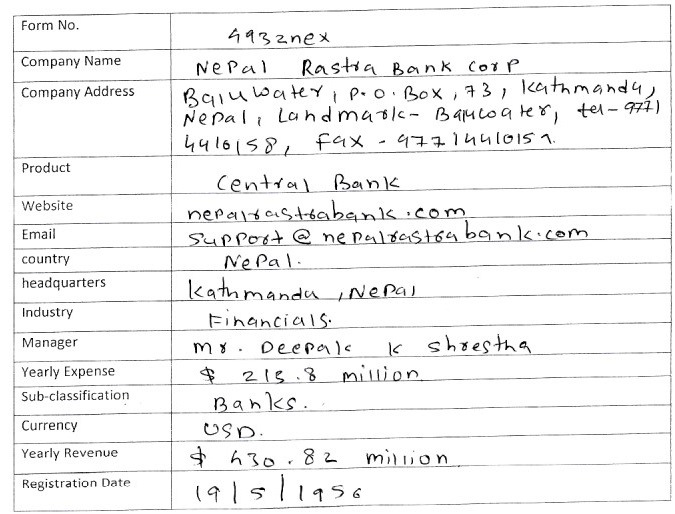 Form No. 4932nex
Company Name Nepal Rastra Bank Corp
Company Address Baluwater, P.O. Box, 73, Kathmandu,
Nepal, Landmark- Baluwater, tel- 9771
4410158, Fax - 97714410159.
Product Central Bank
Website nepalrastrabank.com
Email support@nepalrastrabank.com
country Nepal.
headquarters Kathmandu, Nepal
Industry Financials.
Manager mr. Deepak K Shrestha
Yearly Expense $ 215.8 million
Sub-classification Banks.
Currency USD.
Yearly Revenue $ 430.82 million
Registration Date 19/5/1956